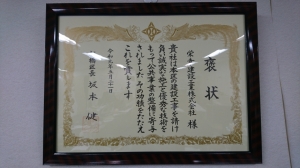 褒状
栄 建設工業株式会社 様
貴社は本区の建設工事を請け
負い誠実な施工と優秀な技術を
もって公共事業の整備に寄与
されました その功績をたたえ
これを賞します
令和 年 月 二十 日
区長 坂本 健